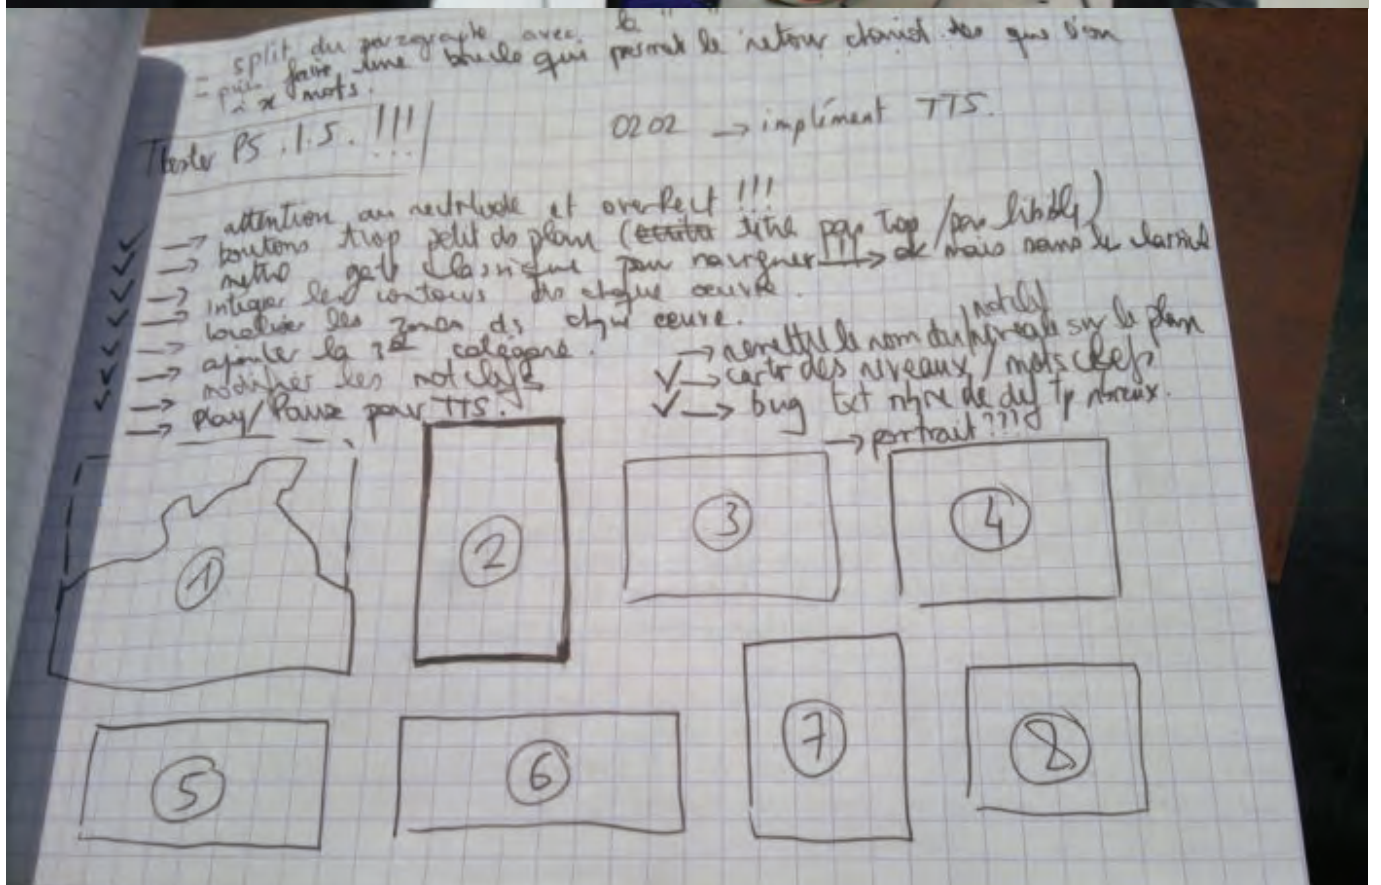 - split du paragraphe avec le " "
- puis faire une boucle qui permet le retour chariot dès que l'on
a x mots.
PS.1.5. !!!
0202 → implément TTS.
→ attention au et !!!
→ boutons trop petit ds plan ( titre pas trop / pas lisible)
→ mettre classique pour naviguer → ok mais sans le clavier
→ intégrer les contours de chaque oeuvre.
→ localiser les zones ds chque oeuvre.
→ ajouter la catégorie.
→ modifier les mot clefs
→ Play/Pause pour TTS.
→ remettre le nom du sur le plan
→ carte des niveaux / mots clefs
→ bug txt nbre de def tp nbreux.
→ portrait ???
1
2
3
4
5
6
7
8